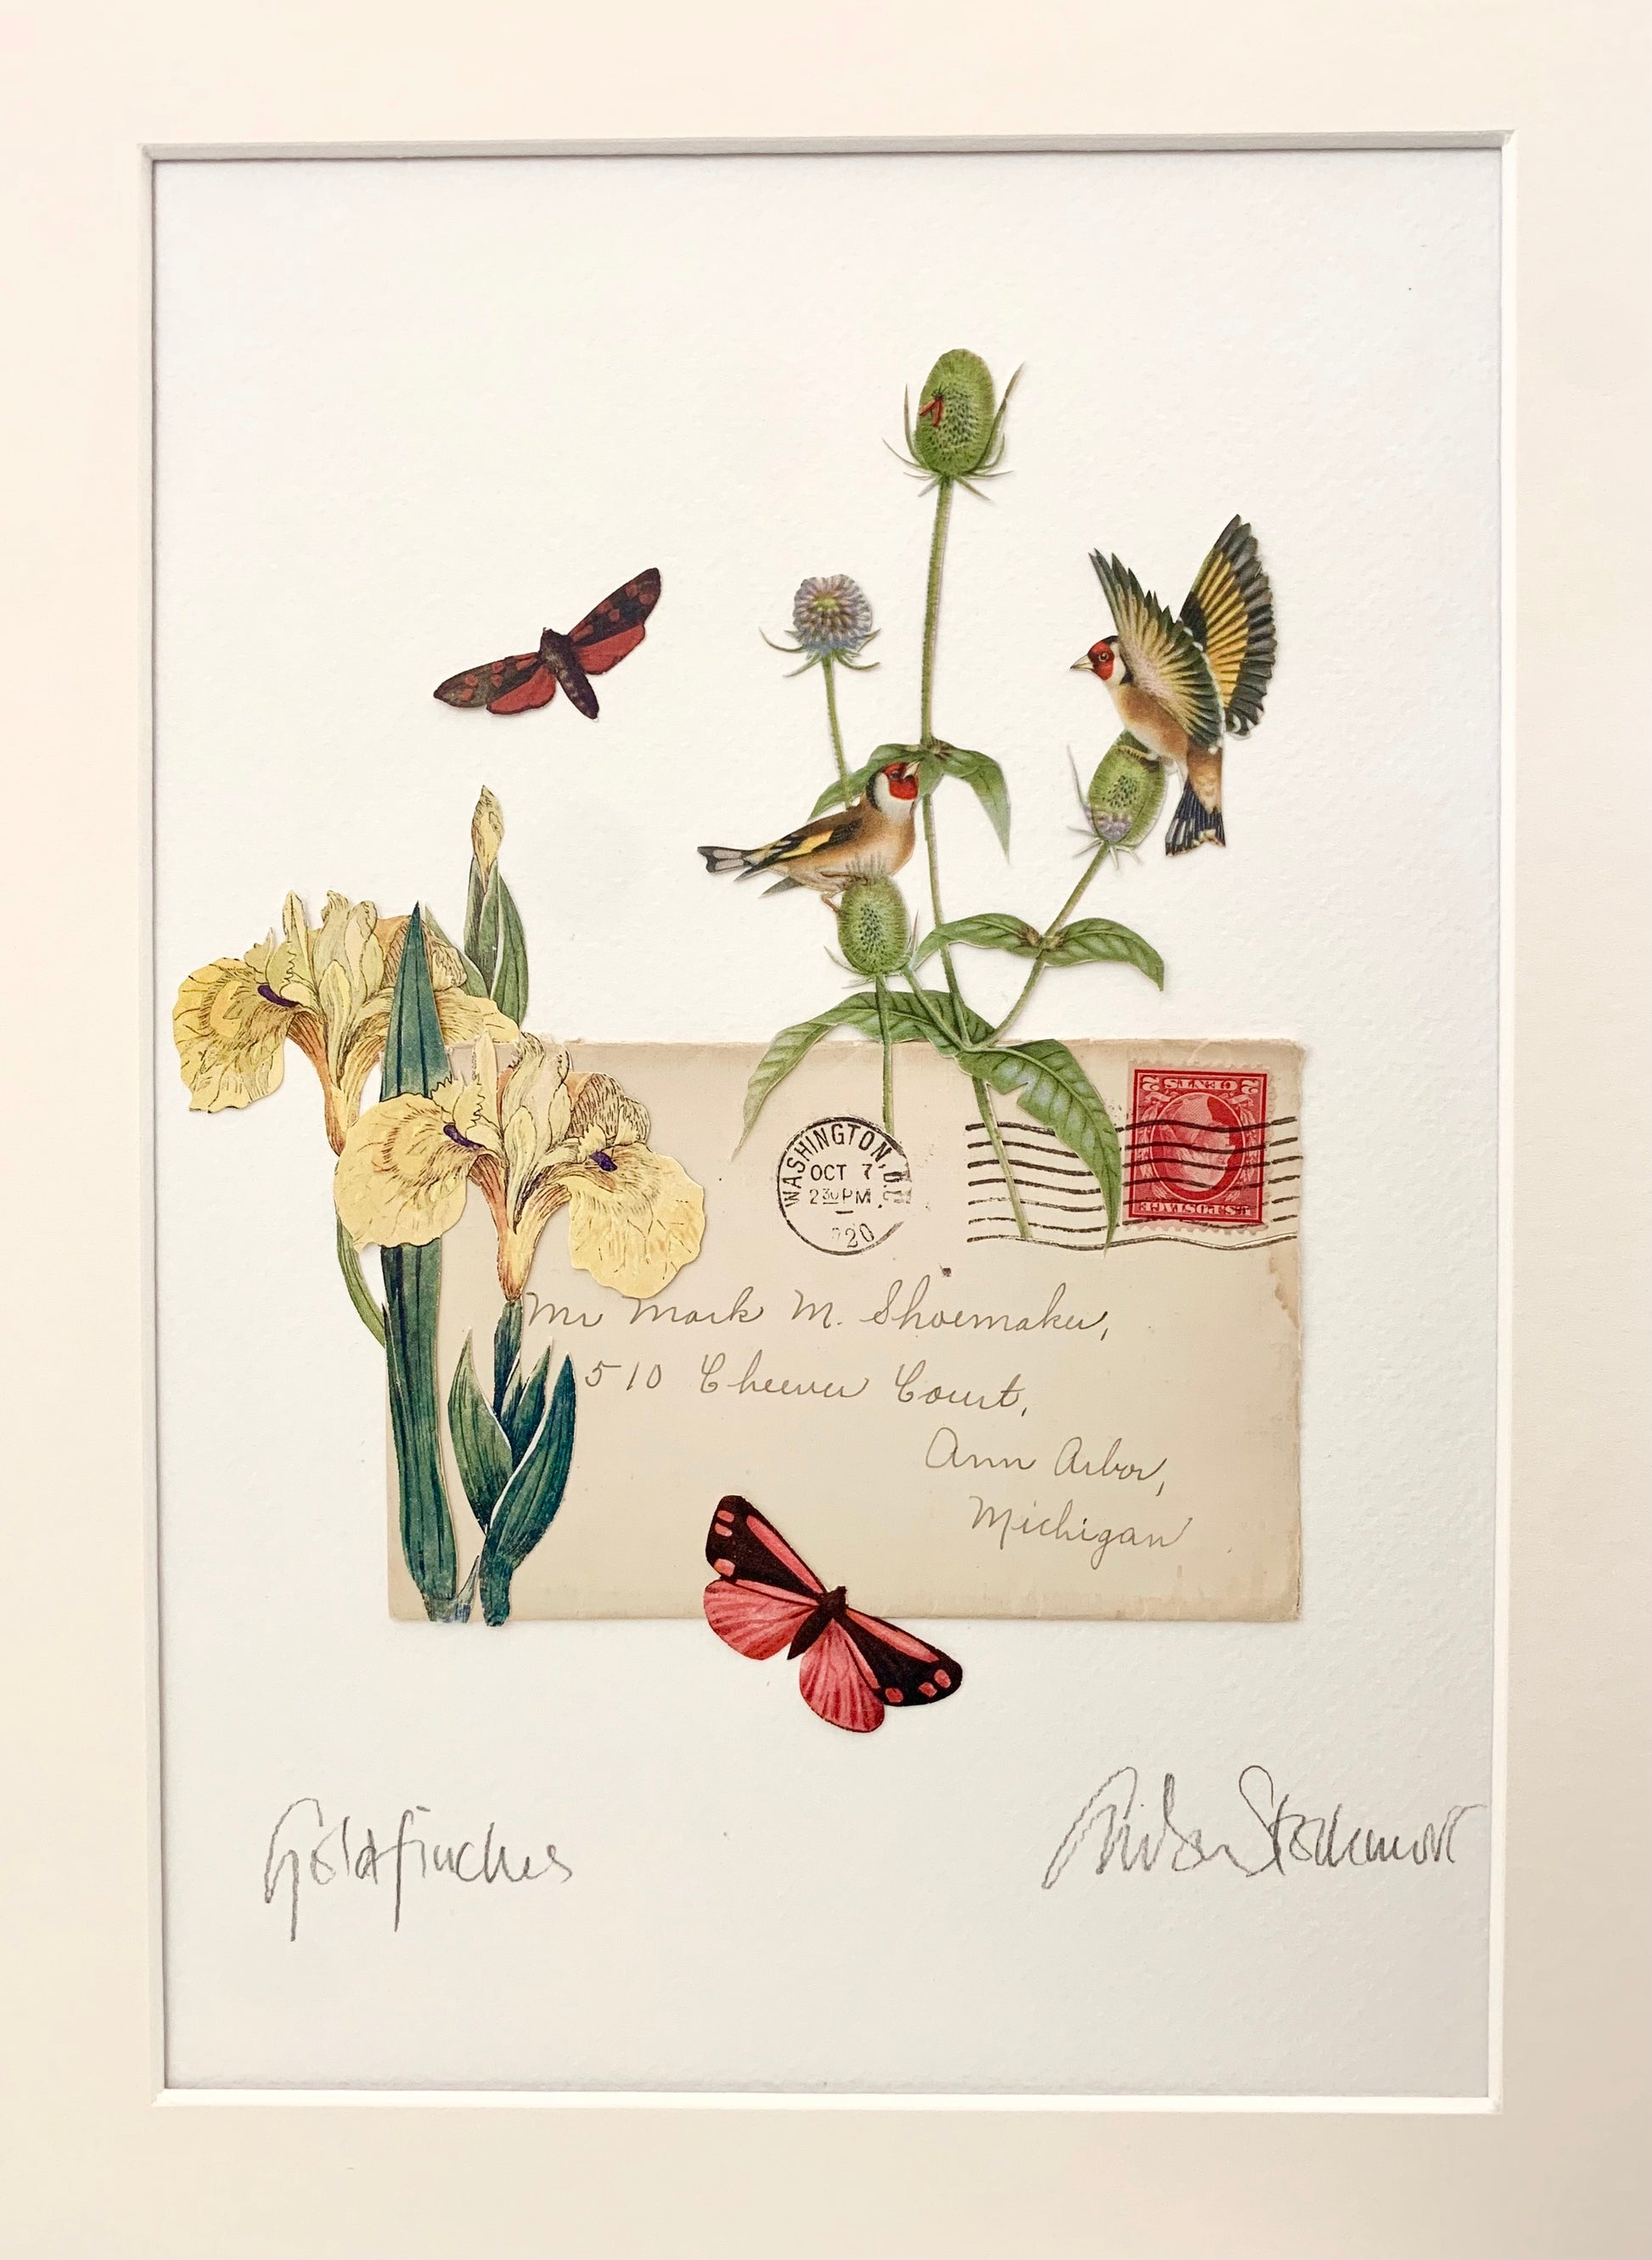 2 CENTS 2
U.S. POSTAGE
WASHINGTON, D.C.
OCT 7
2 30 PM
Mr Mark M. Shoemaker,
510 Cheever Court,
Ann Arbor,
Michigan
Goldfinches